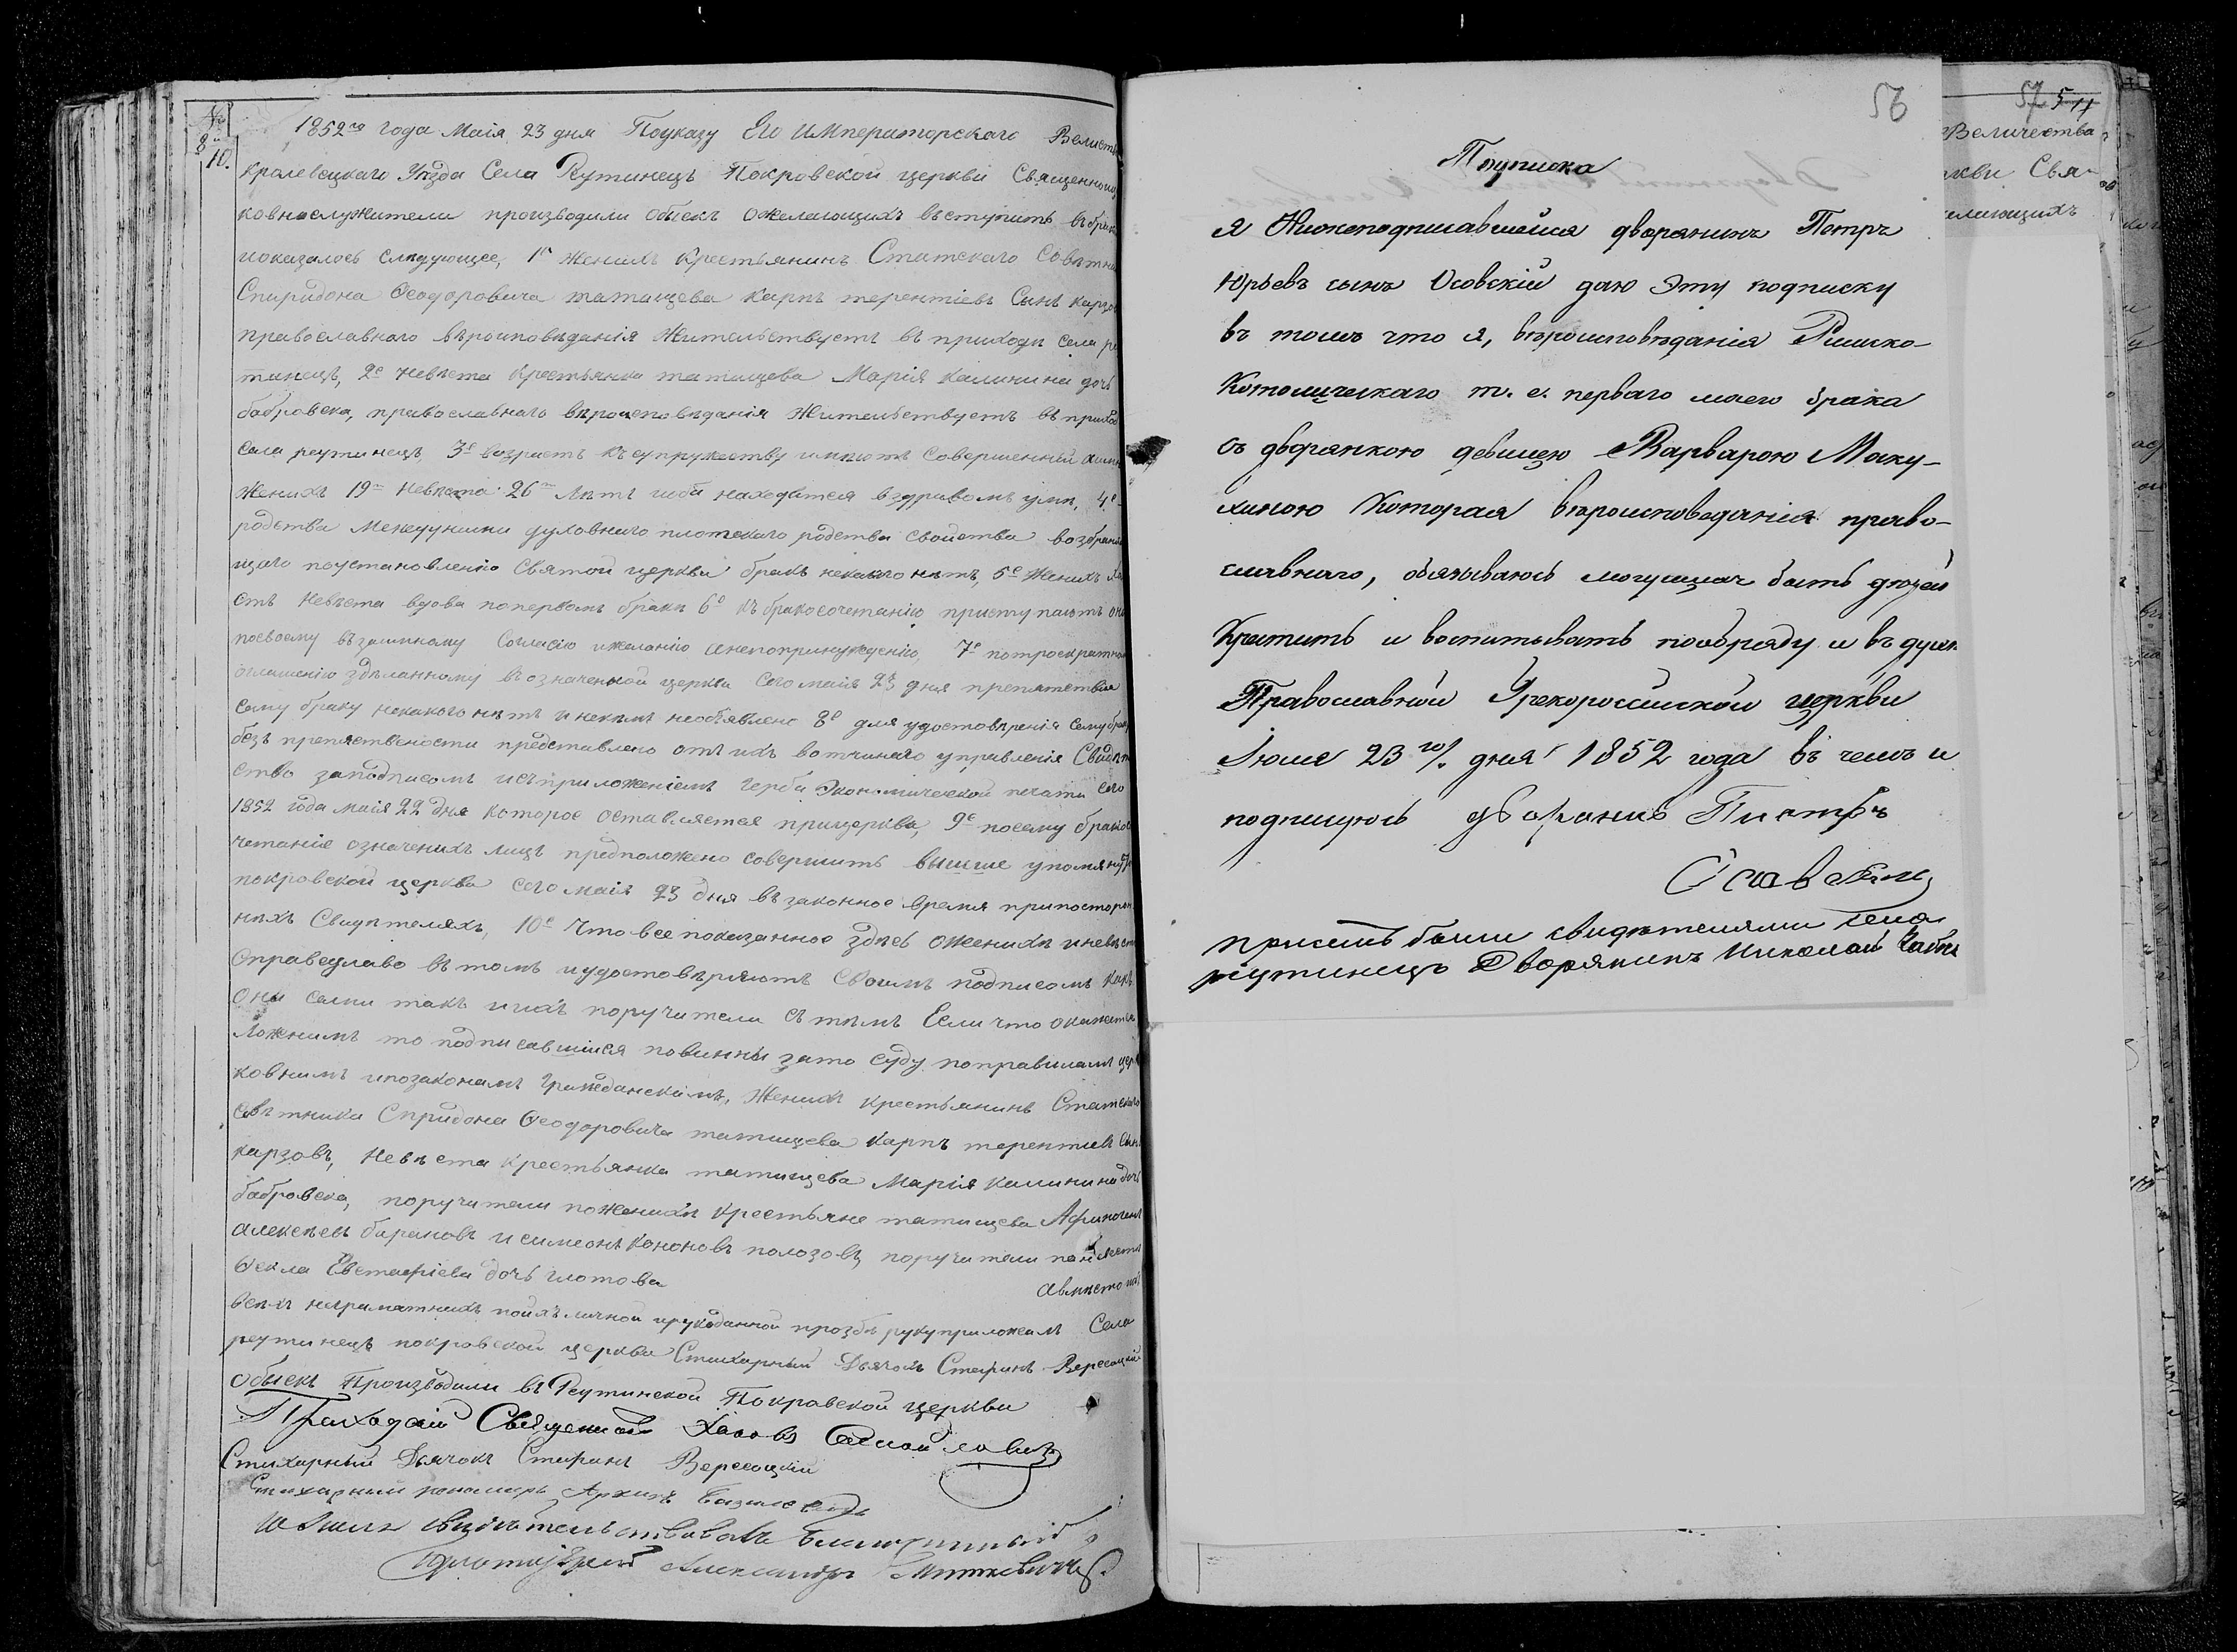 №
8й
10.
1852го года Маія 23 дня Поуказу Его Императорскаго Величест
Кролевецкаго Уѣзда Села Рутинецъ Покровской церкви Священно
ковнослужители производили обыскъ ожелающихъ вступить вбракъ
иоказалось слѣдующее, 1е Женихъ Крестьянинъ Статскаго Совѣтни
Спиридона Ѳеодоровича татищева карпъ терентіевъ Сынъ карзов
православнаго вѣроисповѣданія Жительствуетъ въ приходѣ села ре
тинецъ, 2е Невѣста Крестьянка татищева Марія Калинина дочь
бобровска, православнаго вѣроисповѣданія Жительствуетъ въ приход
села реутинецъ 3е возрастъ ксупружеству имѣютъ Совершенный
Женихъ 19 Невѣста 26 лѣтъ иоба находятся вздравомъ умѣ, 4е
родства Междуними духовнаго плотскаго родства свойства возбраня
щаго поустановленію Святой церкви бракъ некакого нѣтъ, 5е Женихъ
стъ Невѣста вдова попервомъ бракѣ 6е къ бракосочетанію приступаютъ они
посвоему взаимному Согласію ижеланію анепопринужденію, 7е потроекратном
оглашенію здѣланному въозначенной церкви сегомаія 23 дня препятствія
сему браку некакого нѣтъ инекимъ необявлено 8е для удостовѣренія сему брак
безъ препятствености представлено отъ ихъ вотчинаго управленія Свидѣт
ство заподписомъ исъприложеніемъ герба Экономической печати сего
1852 года маія 22 дня которое оставляется прицеркви, 9е посему брако
четаніе означенихъ лицъ предположено совершить вышше упомянут
покровской церкви сего маія 23 дня въ законное время припосторон
нихъ Свидѣтеляхъ, 10е Что все показанное здѣсь оженихѣ иневѣст
Справедливо въ томъ иудостовѣряютъ своимъ подписомъ какъ
они сами такъ иихъ поручители съ тѣмъ Если что окажется
ложнимъ то подписавшіися повинны зато суду поправиламъ цер
ковнимъ ипозаконамъ Гражданскимъ, Женихъ крестьянинъ Статскаго
совѣтника Спридона Ѳеодоровича татищева Карпъ терентіевъ Сынъ
карзовъ, Невѣста крестьянка татищева Марія калинина дочь
бобровска, поручители поженихѣ Крестьяне татищева
алексѣевъ барановъ исимеонъ Кононовъ полозовъ, поручители поневѣстѣ
Ѳекла Евстафіева дочь глотова
авмѣсто ихъ
всѣхъ неграматнихъ поихъ личной ирукоданной прозбѣ руку приложилъ Села
реутинецъ покровской церкви Стихарный Дьячокъ Стефанъ Вересоцкій
Обыскъ Производили въ Реутинской Покровской церкви
Приходскій Священникъ Іаковъ Самойловичъ
Стихарный Дьячокъ Стефанъ Вересоцкій
Стихарный пономарь Архипъ Базилевичъ
Обыскъ свидѣтельствовалъ Благочинный
Протоіерей Александръ
56
Подписка
я Нижеподписавшейся дворянинъ Петръ
Юрьевъ сынъ Осовскій даю Эту подписку
въ томъ что я, вѣроисповѣданія Римско-
Католическаго т. е. перваго моего брака
съ дворянкою девицею Варварою Маку-
хиною Которая вѣроисповеданія право-
славнаго, обязываюсь могущихъ быть дѣтей
Крестить и воспитывать пообряду и въ духѣ
Православной Грекороссийской церкви
Іюля 23го/. дня 1852 года въ чемъ и
подпишусь дворянинъ Пиотръ
Осавскии
присемъ были свидѣтелями села
реутинецъ Дворянинъ Николай
57
Величества
ркви Свя-
елающихъ